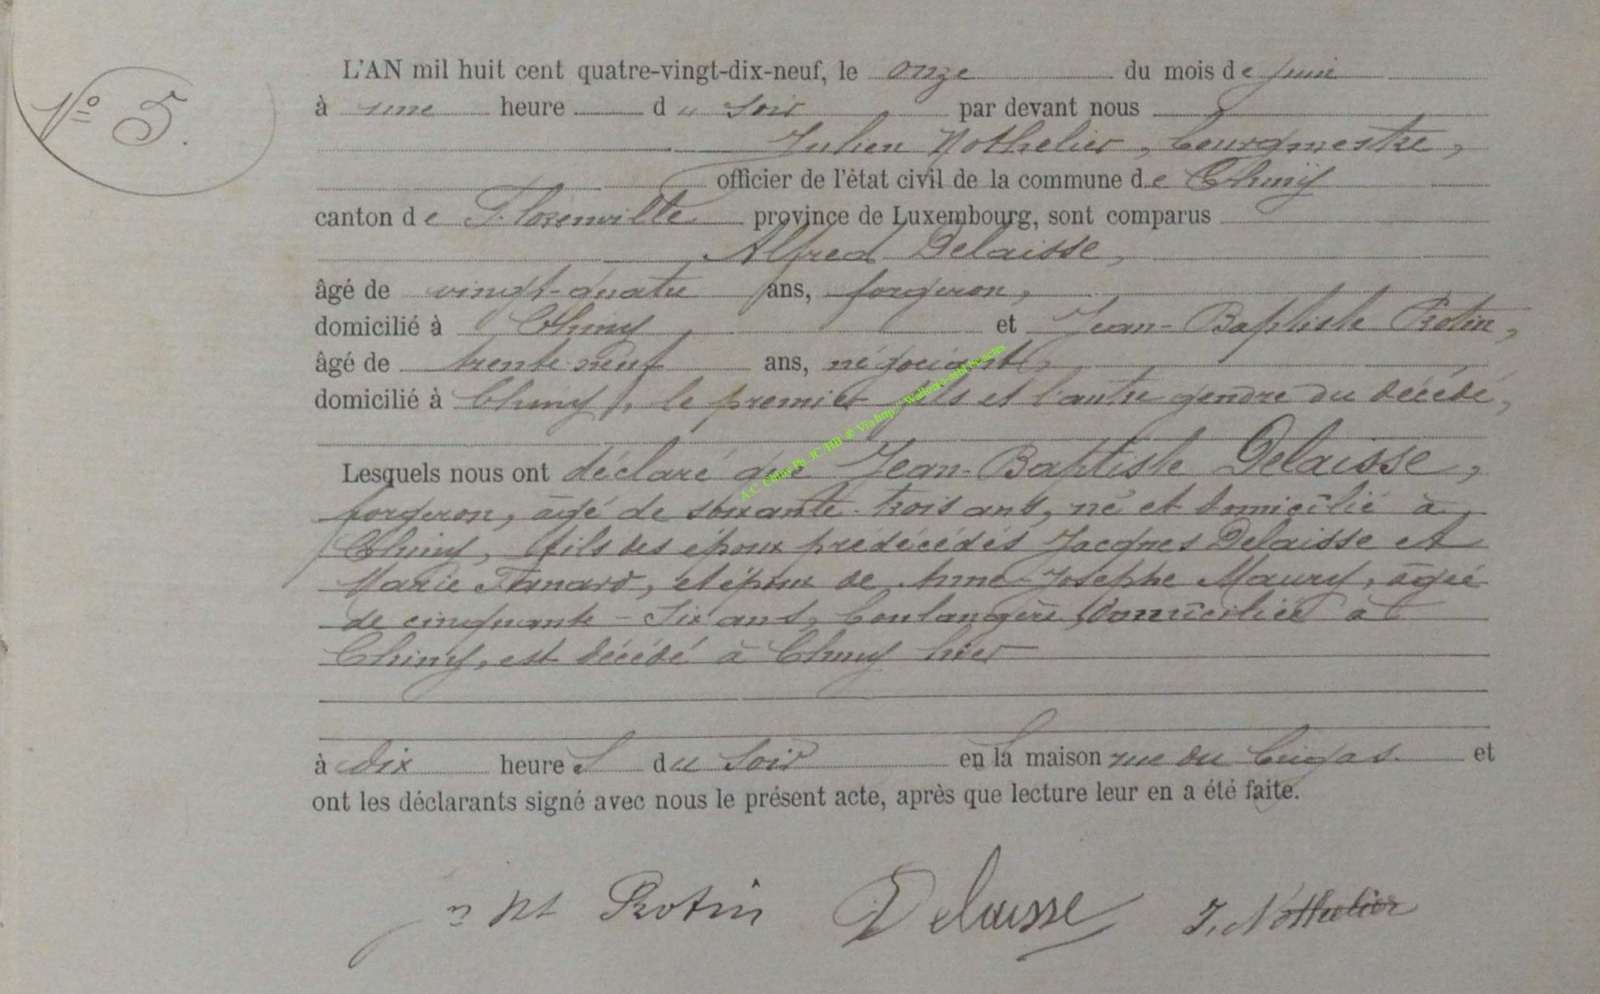 N° 5.
L'AN mil huit cent quatre-vingt-dix-neuf, le onze du mois de juin
à une heure du soir par devant nous
Julien Nothelier, bourgmestre,
officier de l'état civil de la commune de Chiny
canton de Florenville province de Luxembourg, sont comparus
Alfred Delaisse,
âgé de vingt-quatre ans, forgeron,
domicilié à Chiny, et Jean-Baptiste Rotin,
âgé de trente-neuf ans, négociant,
domicilié à Chiny, le premier fils et l'autre gendre du décédé,
Lesquels nous ont déclaré que Jean-Baptiste Delaisse,
forgeron, âgé de soixante-trois ans, né et domicilié à
Chiny, fils des époux prédécédés Jacques Delaisse et
Marie , et époux de Anne-Josephe Maury, âgée
de cinquante-six ans, boulangère, domiciliée à
Chiny, est décédé à Chiny hier
à dix heures du soir en la maison rue du et
ont les déclarants signé avec nous le présent acte, après que lecture leur en a été faite.
Rotin Delaisse J. Nothelier